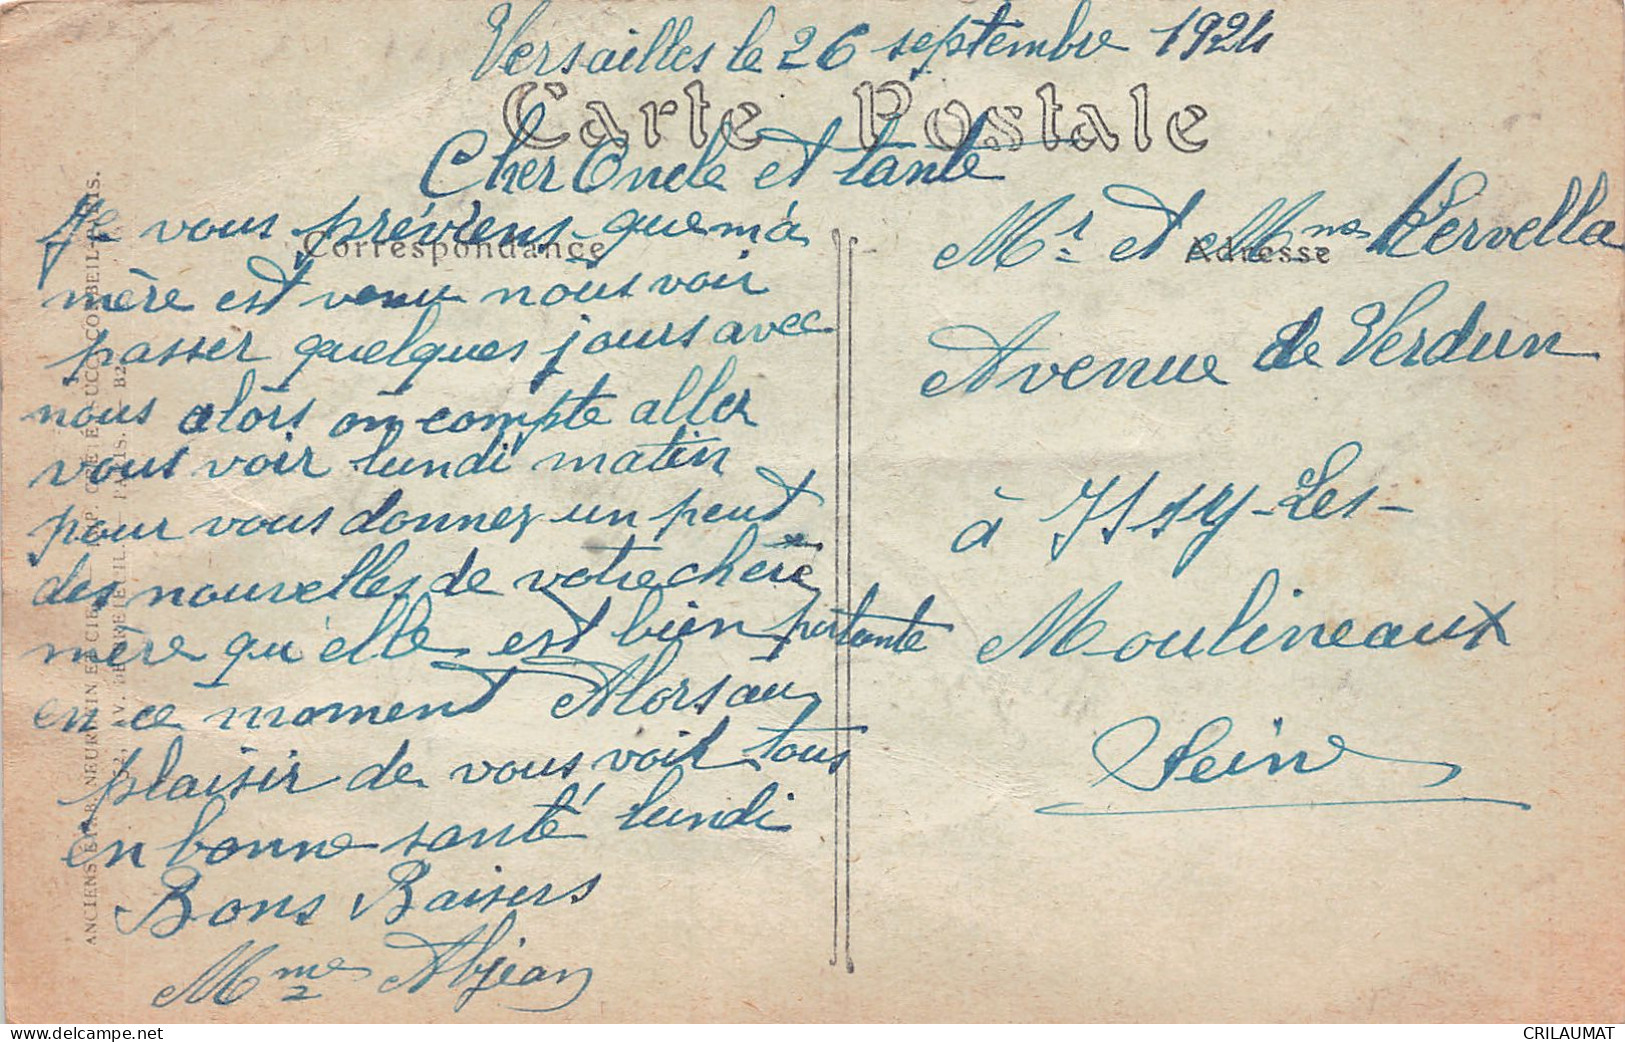 Versailles le 26 septembre 1924
Carte Postale
Cher Oncle et tante
Je vous préviens que ma
Correspondance
mère est venu nous voir
passer quelques jours avec
nous alors on compte aller
vous voir lundi matin
pour vous donnez un peut
des nouvelles de votre chère
mère qu'elle est bien portante
en ce moment Alors au
plaisir de vous voir tous
en bonne santé lundi
Bons Baisers
Mme Abjean
Mr et Mme Kervella
Adresse
Avenue de Verdun
à Issy-Les-
Moulineaux
Seine
CRILAUMAT